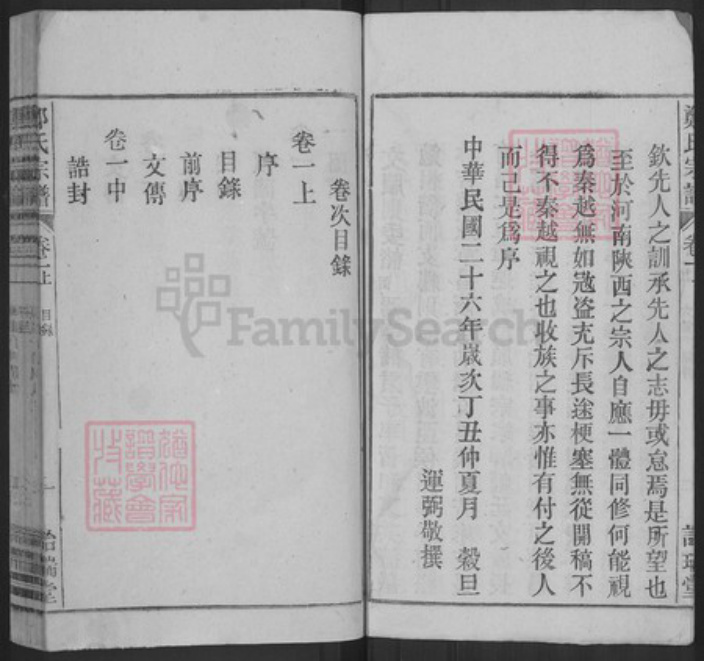 欽先人之訓承先人之志毋或怠焉是所望也
至於河南陝西之宗人自應一體同修何能視
爲秦越無如寇盗充斥長途梗塞無從開稿不
得不秦越視之也收族之事亦惟有付之後人
而已是爲序
中華民國二十六年歲次丁丑仲夏月 穀旦
運弼敬撰
卷次目錄
卷一上
序
目錄
前序
文傳
卷一中
誥封
鄭氏宗譜
卷一上
目錄
一
FamilySearch